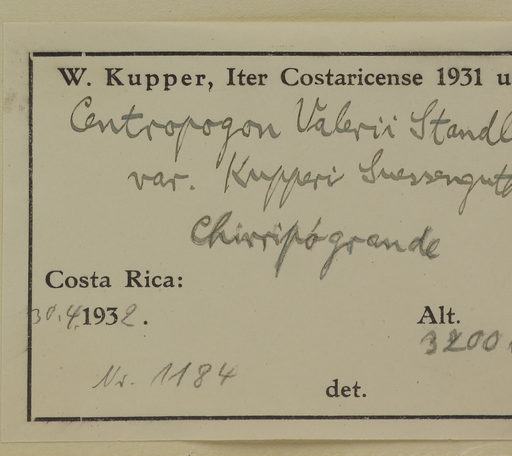 W. Kupper, Iter Costaricense 1931 u
Centropogon Valerii Standl
var. Kupperi Suessenguth
Chirripó grande
Costa Rica:
30.4.1932.
Alt.
3200
Nr. 1184
det.